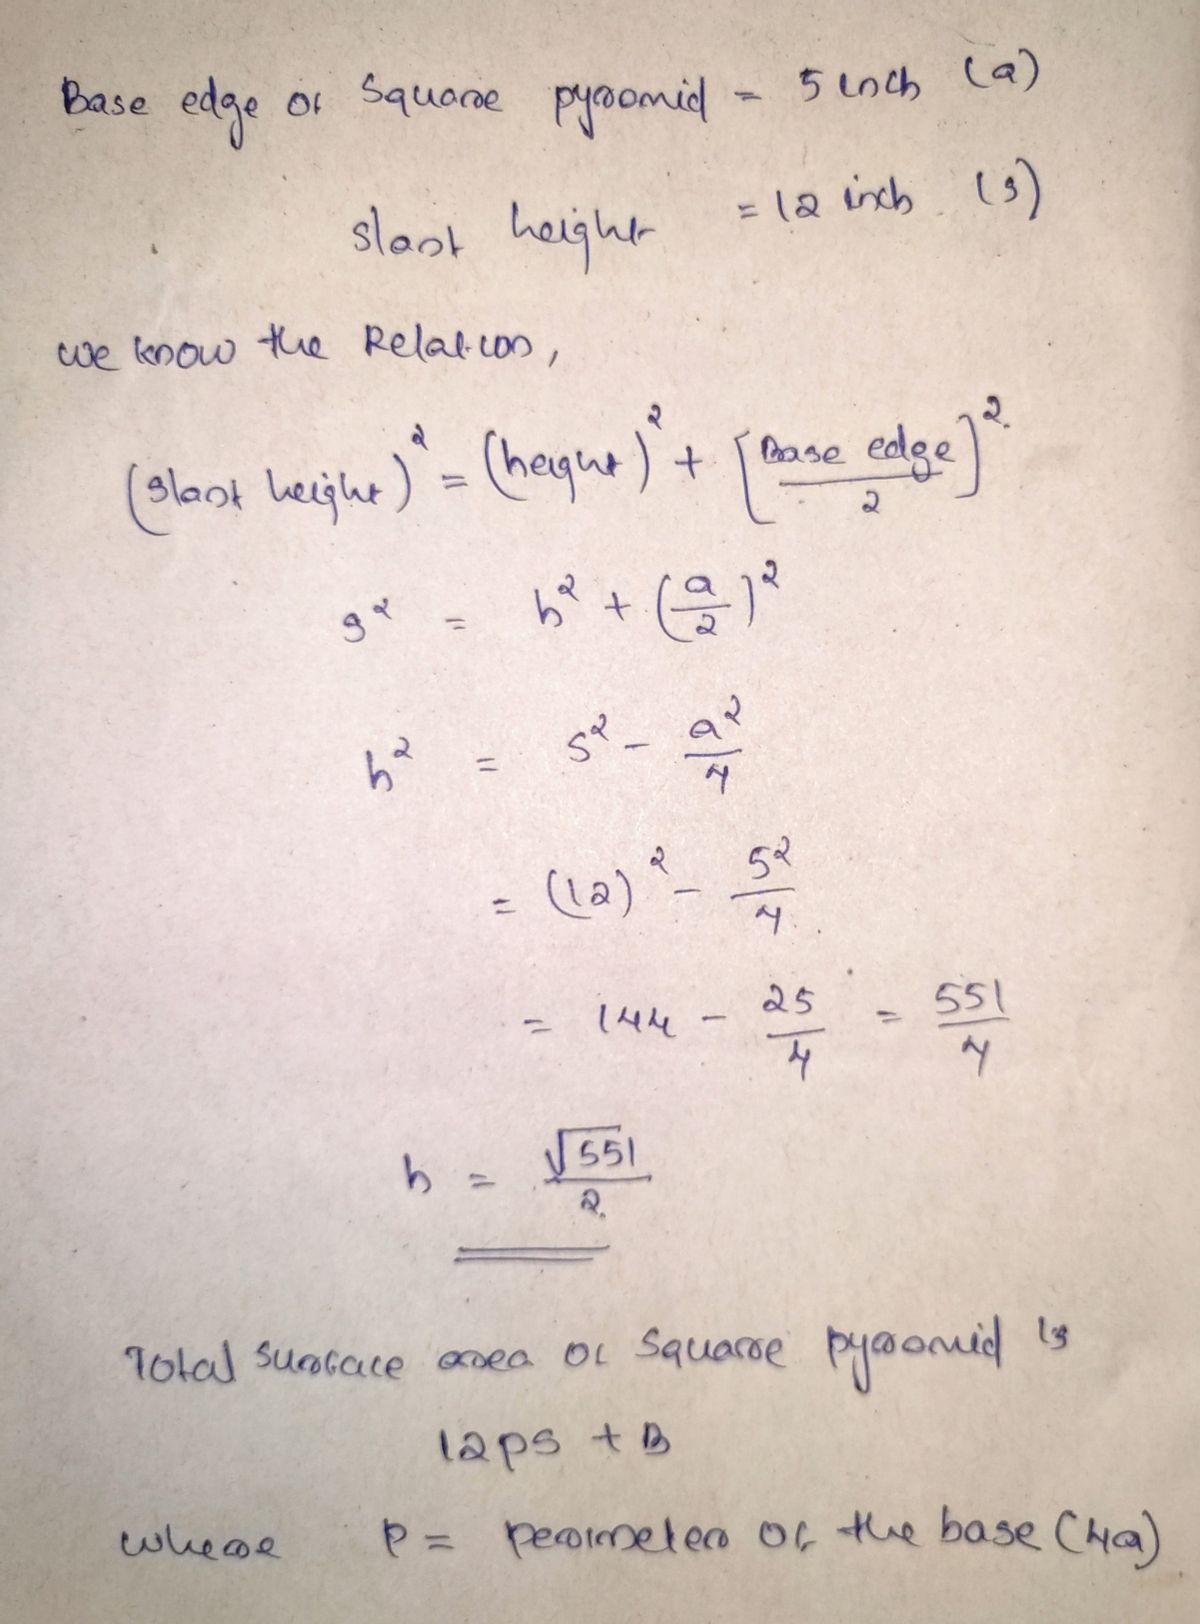 Base edge of Square pyramid = 5 inch (a)
slant height = 12 inch (s)
we know the Relation,
(slant height)² = (height)² + [Base edge / 2]².
s² = h² + (a/2)²
h² = s² - a²/4
= (12)² - 5²/4
= 144 - 25/4 = 551/4
h = √551/2
Total surface area of square pyramid is
12ps + B
where P = perimeter of the base (4a)